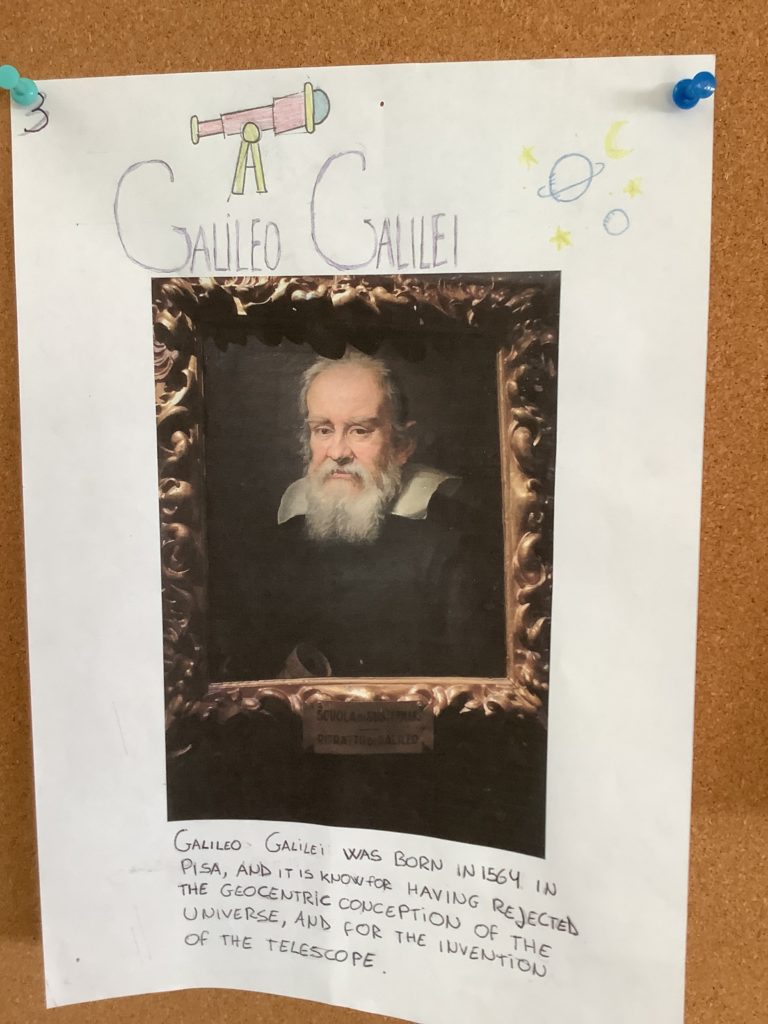 3
GALILEO GALILEI
SCUOLA DI SUSTERMANS
RITRATTO DI GALILEO
GALILEO GALILEI WAS BORN IN 1564 IN
PISA, AND IT IS KNOW FOR HAVING REJECTED
THE GEOCENTRIC CONCEPTION OF THE
UNIVERSE, AND FOR THE INVENTION
OF THE TELESCOPE.